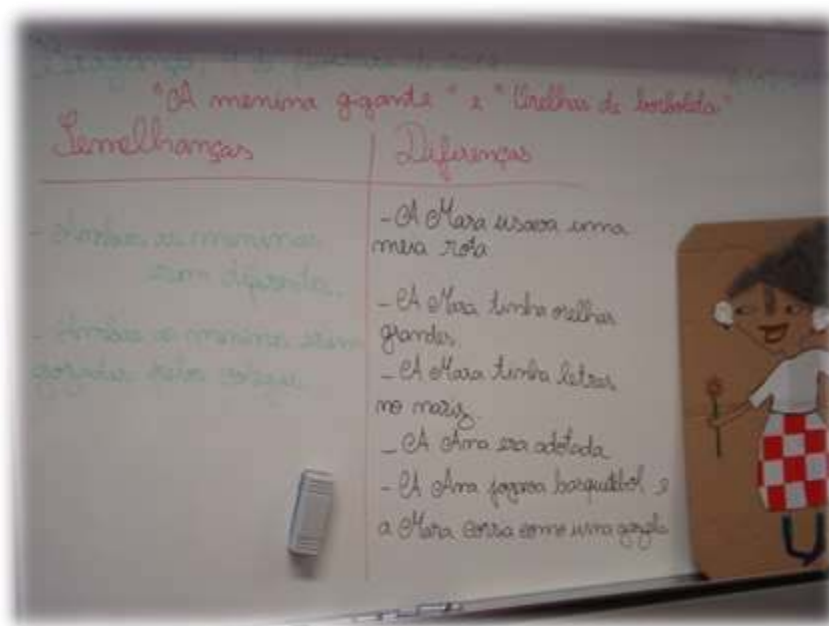 Bragança,
"A menina gigante" e "Orelhas de borboleta"
Semelhanças
Diferenças
- Ambas as meninas
eram diferentes.
- Ambas as meninas eram
gozadas pelos colegas.
- A Mara usava uma
meia rota
- A Mara tinha orelhas
grandes.
- A Mara tinha letras
no nariz.
- A Ana era adotada
- A Ana jogava basquetebol e
a Mara corria como uma gazela